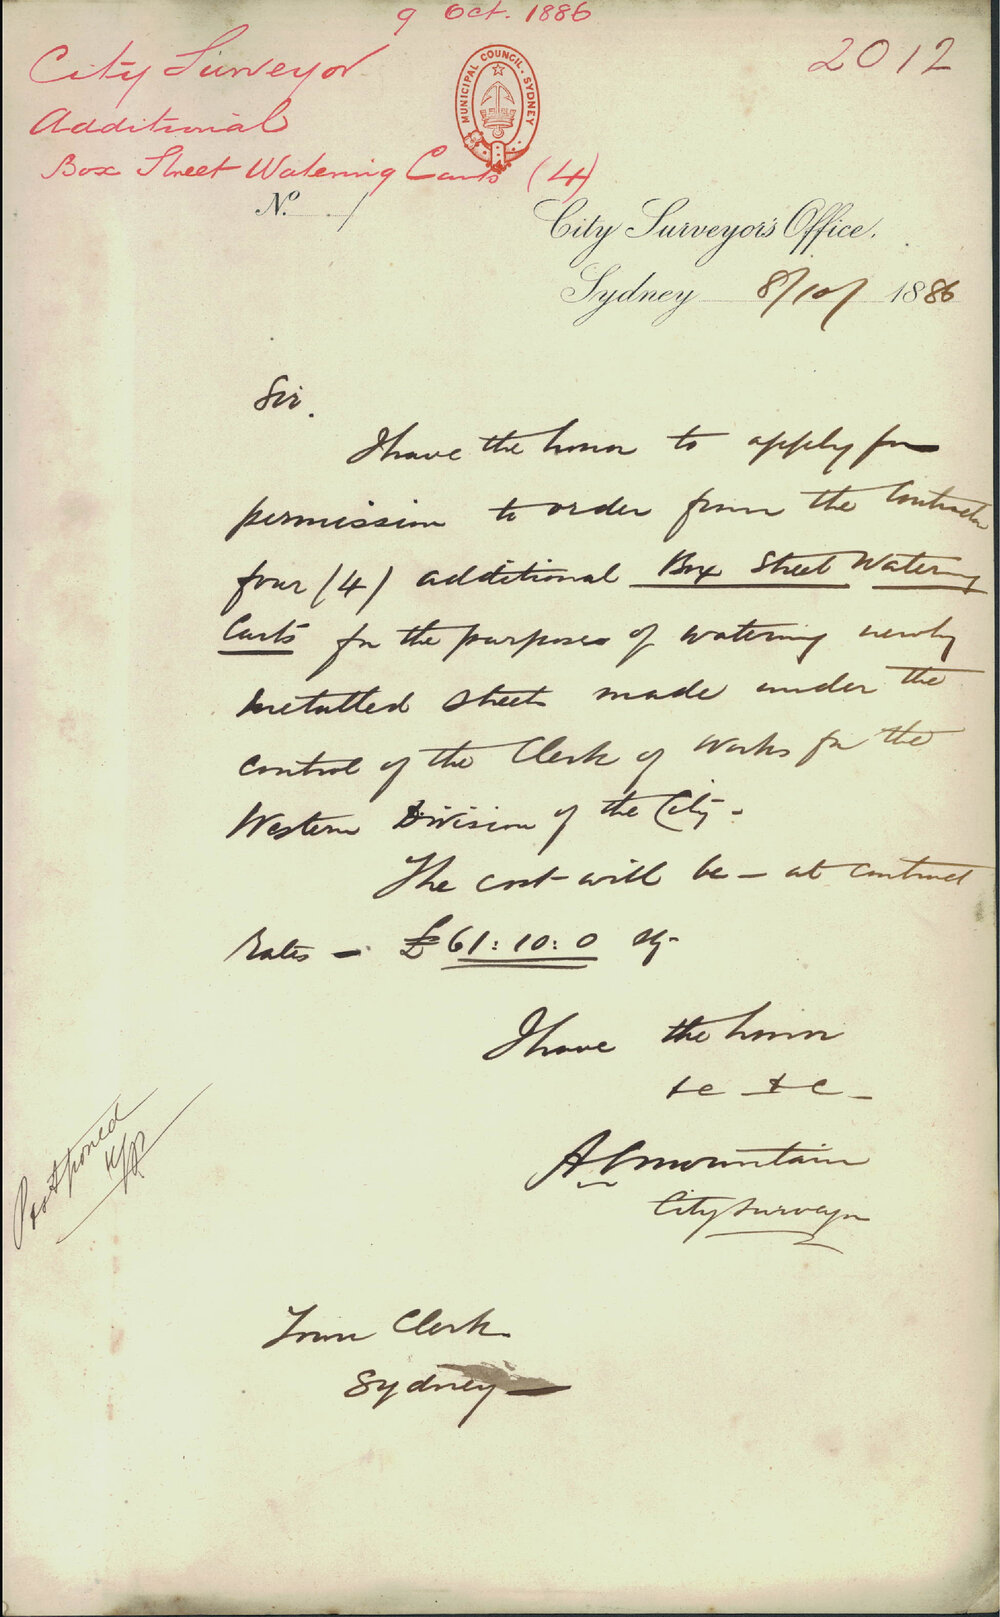 9 Oct. 1886
2012
City Surveyor
Additional
Box Street Watering Carts (4)
MUNICIPAL COUNCIL. SYDNEY
No. /
City Surveyor's Office.
Sydney 8/10/ 1886
Sir.
I have the honor to apply for
permission to order from the Contractor
four (4) additional Box Street Watering
Carts for the purposes of watering newly
metalled streets made under the
control of the Clerk of Works for the
Western Division of the City -
The cost will be - at contract
rates - £61:10:0
I have the honor
&c &c -
A C Mountain
City Surveyor
Postponed
Town Clerk
Sydney -